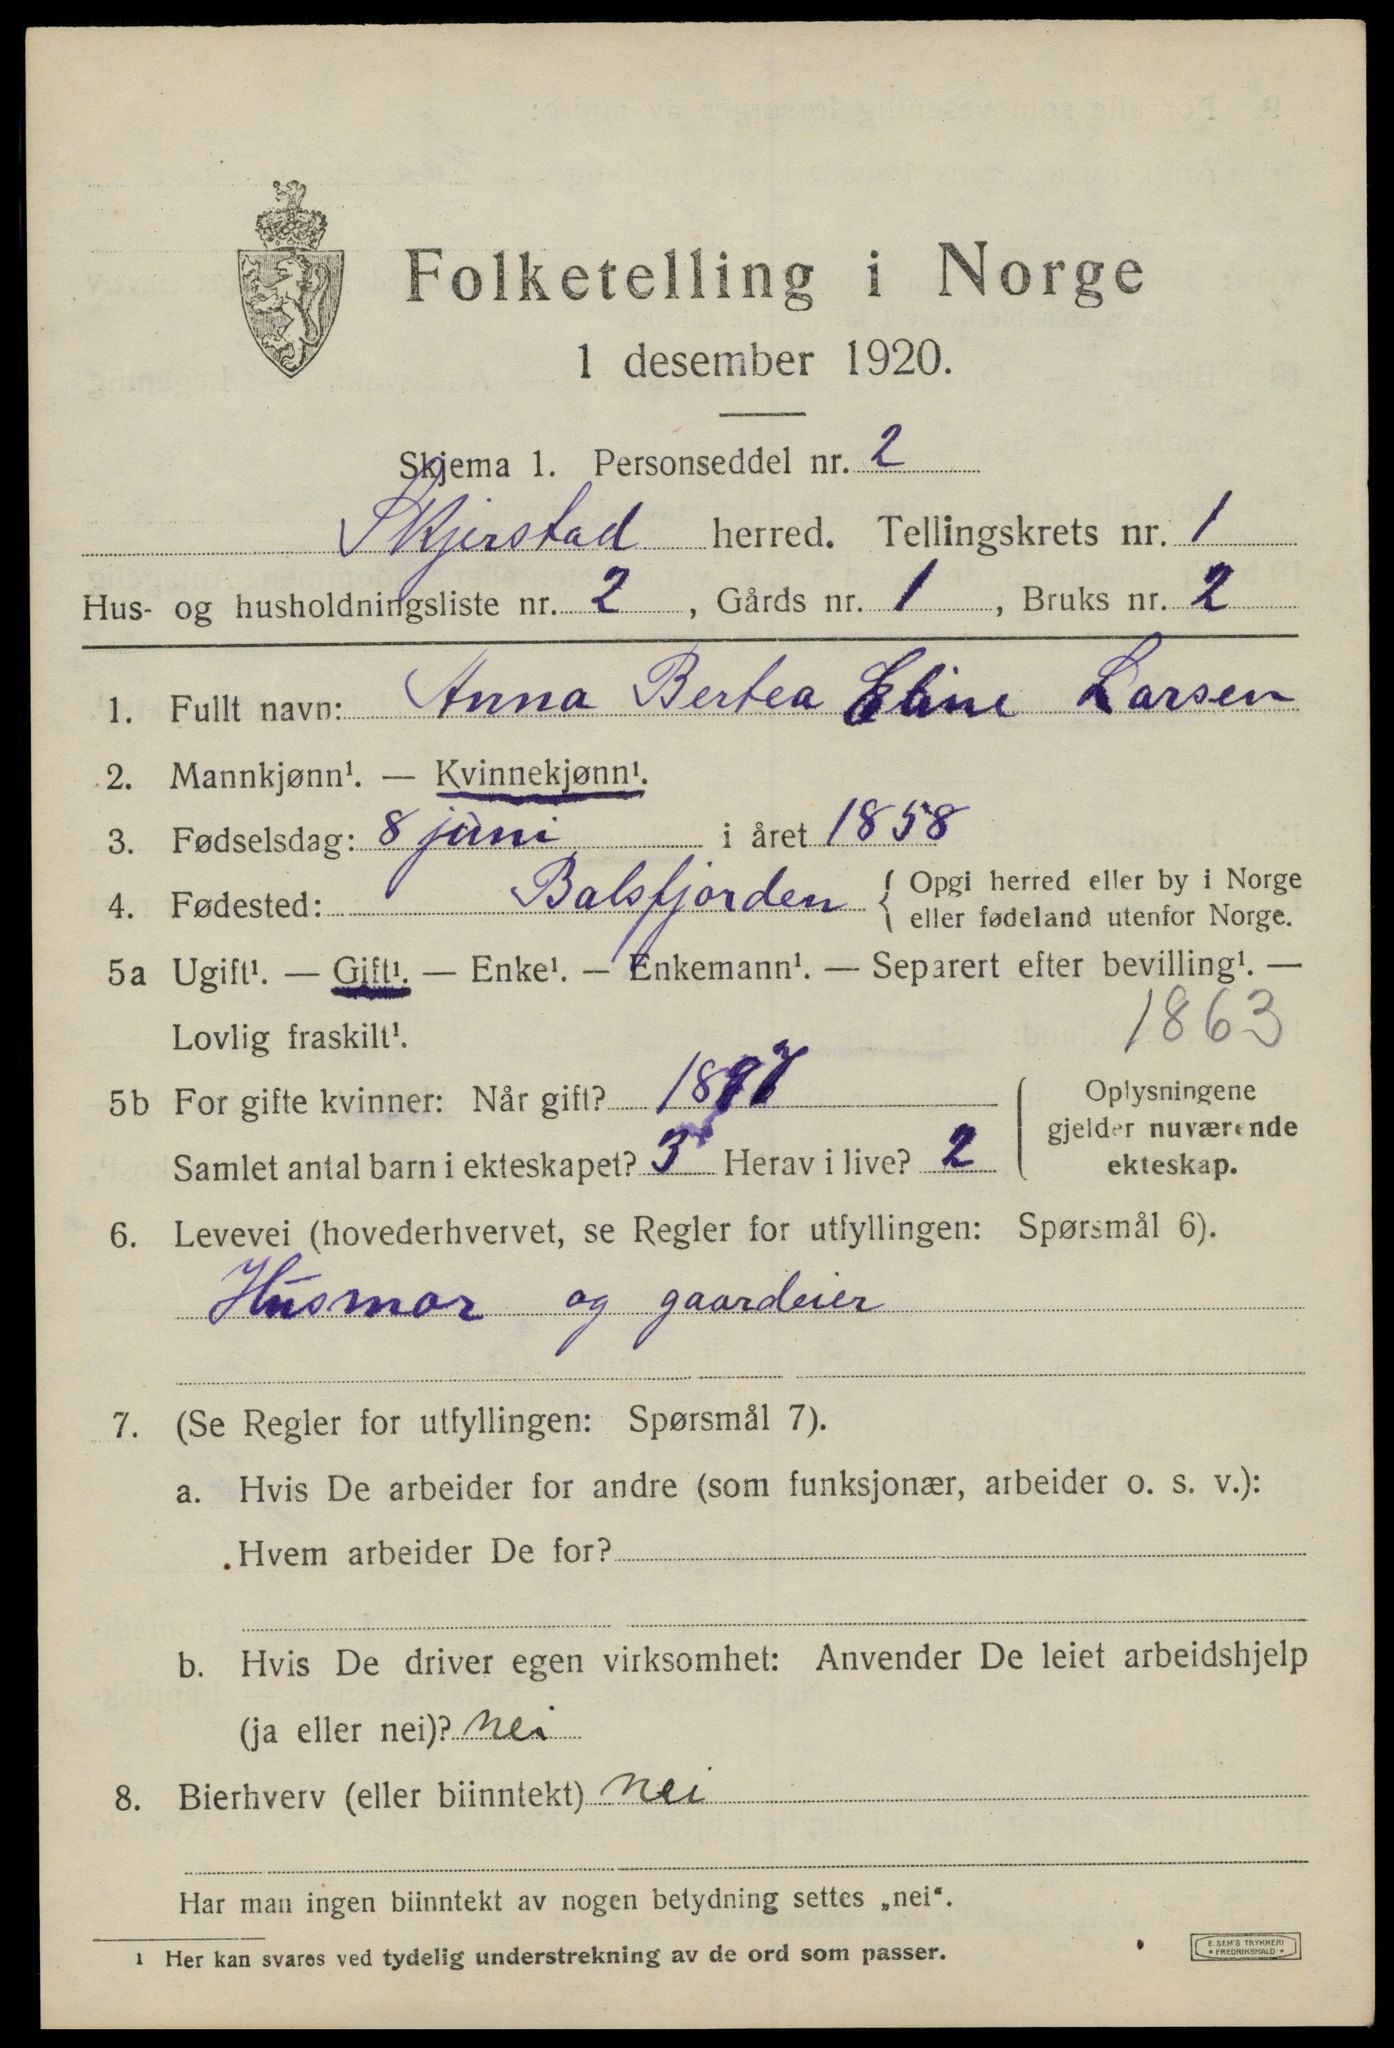 Folketelling i Norge
1 desember 1920.
Skjema 1. Personseddel nr. 2
Skjerstad herred. Tellingskrets nr. 1
Hus- og husholdningsliste nr. 2, Gårds nr. 1, Bruks nr. 2
1. Fullt navn: Anna Bertea Eline Larsen
2. Mannkjønn¹. — Kvinnekjønn¹.
3. Fødselsdag: 8 juni i året 1858
4. Fødested: Balsfjorden { Opgi herred eller by i Norge
eller fødeland utenfor Norge.
5a Ugift¹. — Gift¹. — Enke¹. — Enkemann¹. — Separert efter bevilling¹. —
Lovlig fraskilt¹. 1863
5b For gifte kvinner: Når gift? 1897
Samlet antal barn i ekteskapet? 3 Herav i live? 2
Oplysningene
gjelder nuværende
ekteskap.
6. Levevei (hovederhvervet, se Regler for utfyllingen: Spørsmål 6).
Husmor og gaardeier
7. (Se Regler for utfyllingen: Spørsmål 7).
a. Hvis De arbeider for andre (som funksjonær, arbeider o. s. v.):
Hvem arbeider De for?
b. Hvis De driver egen virksomhet: Anvender De leiet arbeidshjelp
(ja eller nei)? nei
8. Bierhverv (eller biinntekt) nei
Har man ingen biinntekt av nogen betydning settes „nei“.
¹ Her kan svares ved tydelig understrekning av de ord som passer.
E. SEM'S TRYKKERI
• FREDRIKSHALD •